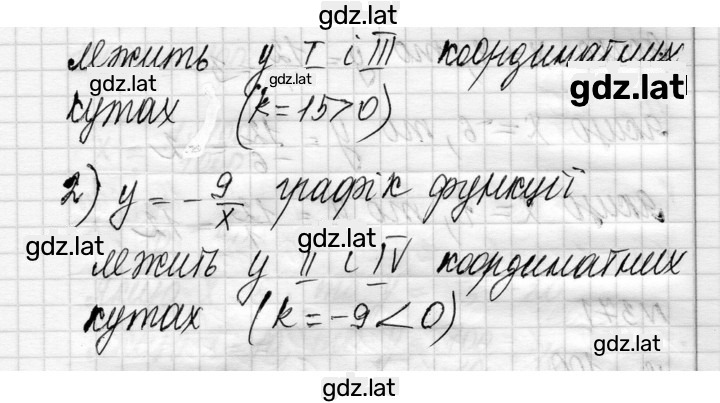 gdz.lat
лежить у I і III координатних
gdz.lat gdz.lat gdz.lat
кутах (k=15>0)
2) y = -9/x графік функції
gdz.lat gdz.lat
лежить у II і IV координатних
кутах (k=-9<0)
gdz.lat
gdz.lat